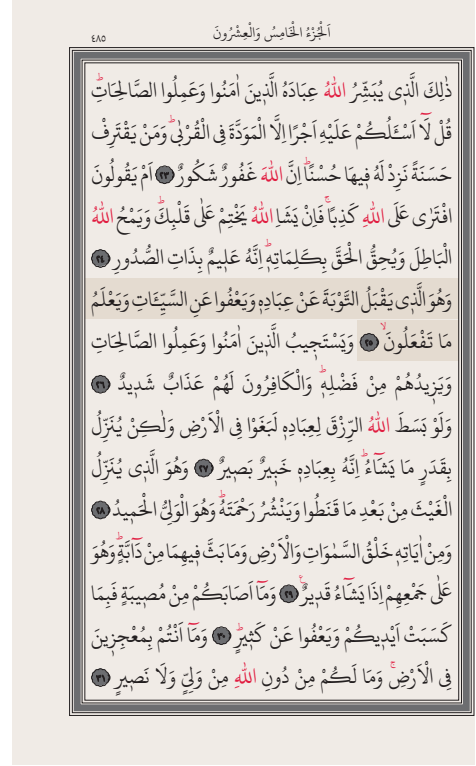 اَلْجُزْءُ الْخَامِسُ وَالْعِشْرُونَ
٤٨٥
ذٰلِكَ الَّذ۪ي يُبَشِّرُ اللّٰهُ عِبَادَهُ الَّذ۪ينَ اٰمَنُوا وَعَمِلُوا الصَّالِحَاتِۜ
قُلْ لَٓا اَسْـَٔلُكُمْ عَلَيْهِ اَجْرًا اِلَّا الْمَوَدَّةَ فِي الْقُرْبٰىۜ وَمَنْ يَقْتَرِفْ
حَسَنَةً نَزِدْ لَهُ ف۪يهَا حُسْنًاۜ اِنَّ اللّٰهَ غَفُورٌ شَكُورٌ ﴿٢٣﴾ اَمْ يَقُولُونَ
افْتَرٰى عَلَى اللّٰهِ كَذِبًاۚ فَاِنْ يَشَأِ اللّٰهُ يَخْتِمْ عَلٰى قَلْبِكَۜ وَيَمْحُ اللّٰهُ
الْبَاطِلَ وَيُحِقُّ الْحَقَّ بِكَلِمَاتِه۪ۜ اِنَّهُ عَل۪يمٌ بِذَاتِ الصُّدُورِ ﴿٢٤﴾
وَهُوَ الَّذ۪ي يَقْبَلُ التَّوْبَةَ عَنْ عِبَادِه۪ وَيَعْفُوا عَنِ السَّيِّـَٔاتِ وَيَعْلَمُ
مَا تَفْعَلُونَۙ ﴿٢٥﴾ وَيَسْتَج۪يبُ الَّذ۪ينَ اٰمَنُوا وَعَمِلُوا الصَّالِحَاتِ
وَيَز۪يدُهُمْ مِنْ فَضْلِه۪ۜ وَالْكَافِرُونَ لَهُمْ عَذَابٌ شَد۪يدٌ ﴿٢٦﴾
وَلَوْ بَسَطَ اللّٰهُ الرِّزْقَ لِعِبَادِه۪ لَبَغَوْا فِي الْاَرْضِ وَلٰكِنْ يُنَزِّلُ
بِقَدَرٍ مَا يَشَٓاءُۜ اِنَّهُ بِعِبَادِه۪ خَب۪يرٌ بَص۪يرٌ ﴿٢٧﴾ وَهُوَ الَّذ۪ي يُنَزِّلُ
الْغَيْثَ مِنْ بَعْدِ مَا قَنَطُوا وَيَنْشُرُ رَحْمَتَهُۜ وَهُوَ الْوَلِيُّ الْحَم۪يدُ ﴿٢٨﴾
وَمِنْ اٰيَاتِه۪ خَلْقُ السَّمٰوَاتِ وَالْاَرْضِ وَمَا بَثَّ ف۪يهِمَا مِنْ دَٓابَّةٍۜ وَهُوَ
عَلٰى جَمْعِهِمْ اِذَا يَشَٓاءُ قَد۪يرٌ۟ ﴿٢٩﴾ وَمَٓا اَصَابَكُمْ مِنْ مُص۪يبَةٍ فَبِمَا
كَسَبَتْ اَيْد۪يكُمْ وَيَعْفُوا عَنْ كَث۪يرٍۜ ﴿٣٠﴾ وَمَٓا اَنْتُمْ بِمُعْجِز۪ينَ
فِي الْاَرْضِۚ وَمَا لَكُمْ مِنْ دُونِ اللّٰهِ مِنْ وَلِيٍّ وَلَا نَص۪يرٍ ﴿٣١﴾